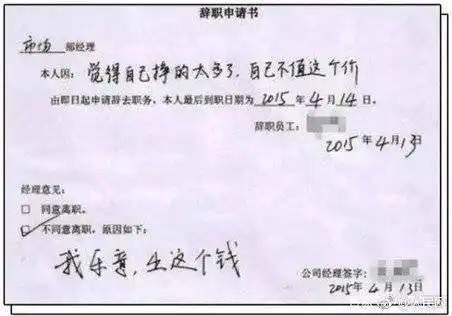 辞职申请书
市场 部经理
本人因：觉得自己挣的太多了，自己不值这个价
由即日起申请辞去职务，本人最后到职日期为2015年4月14日。
辞职员工：
2015年4月13
经理意见：
□ 同意离职。
□ 不同意离职，原因如下：
我乐意，出这个钱
公司经理签字：
2015年4月13日